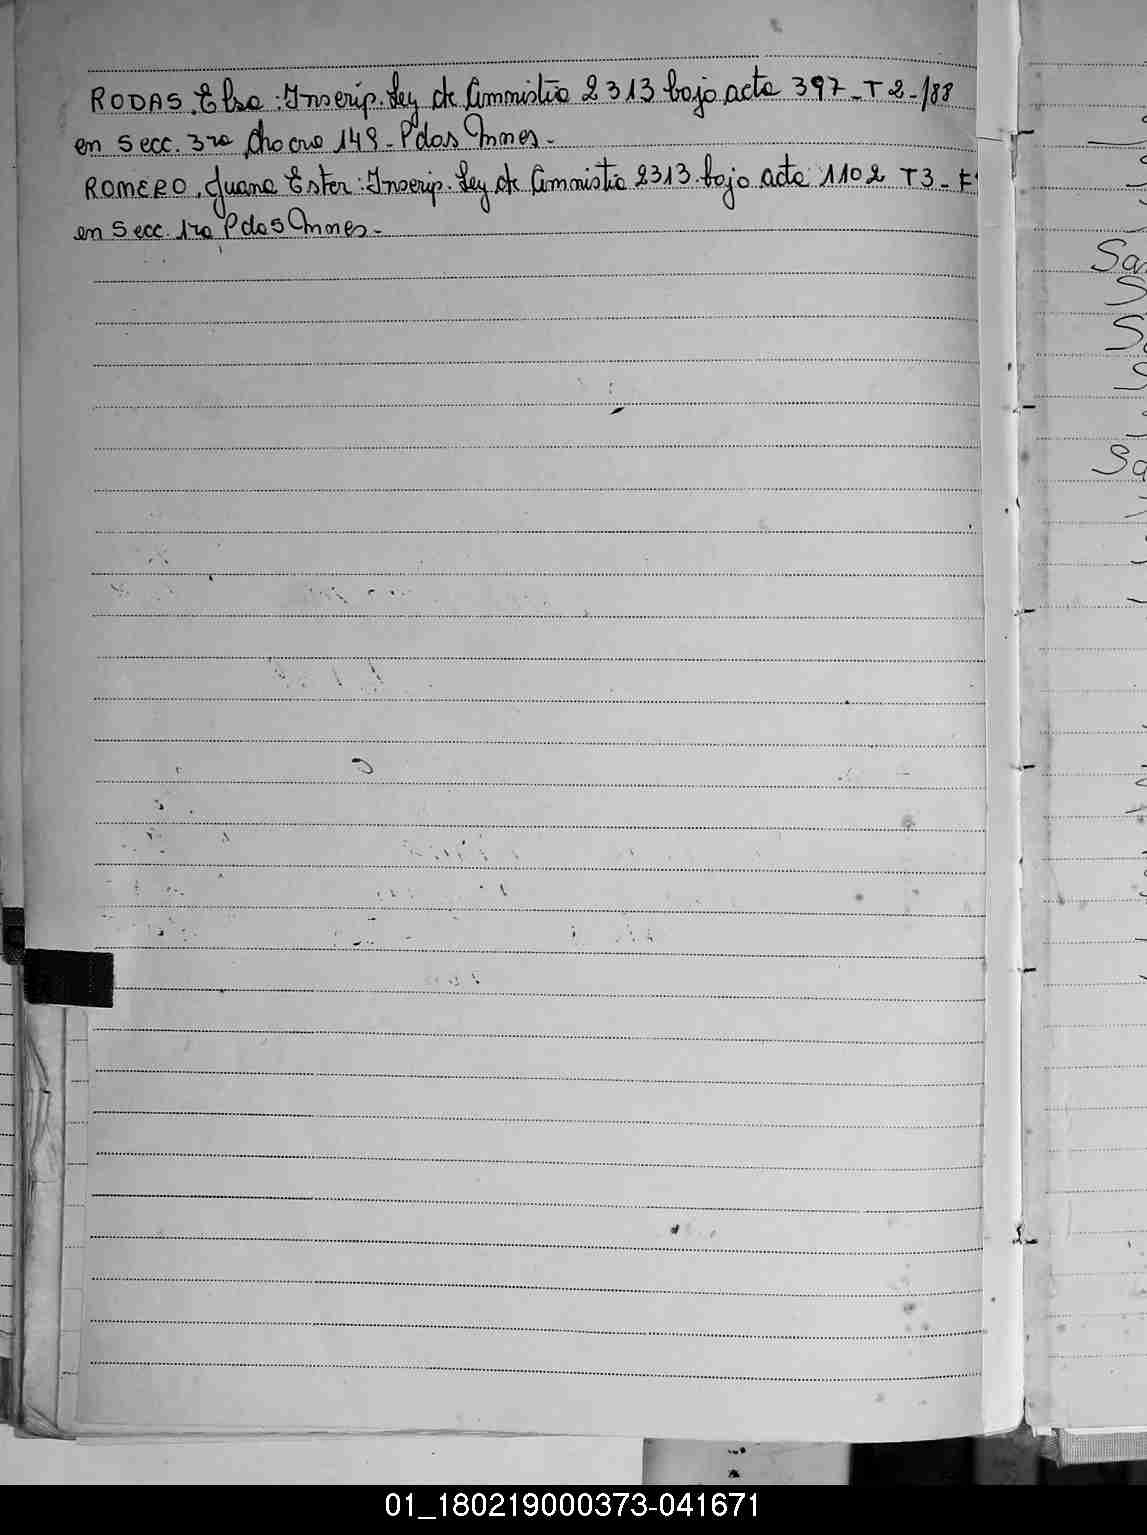 RODAS, Elsa: Inscrip. Ley de Ammistia 2313 bajo acta 397-T2-/88
en Secc. 3ra Chacra 149 - Pdas Mnes.-
ROMERO, Juana Ester: Inscrip. Ley de Ammistia 2313 bajo acta 1102 T3-
en Secc. 1ra Pdas Mnes.-
Sa
S
S
S
Sa
01_180219000373-041671